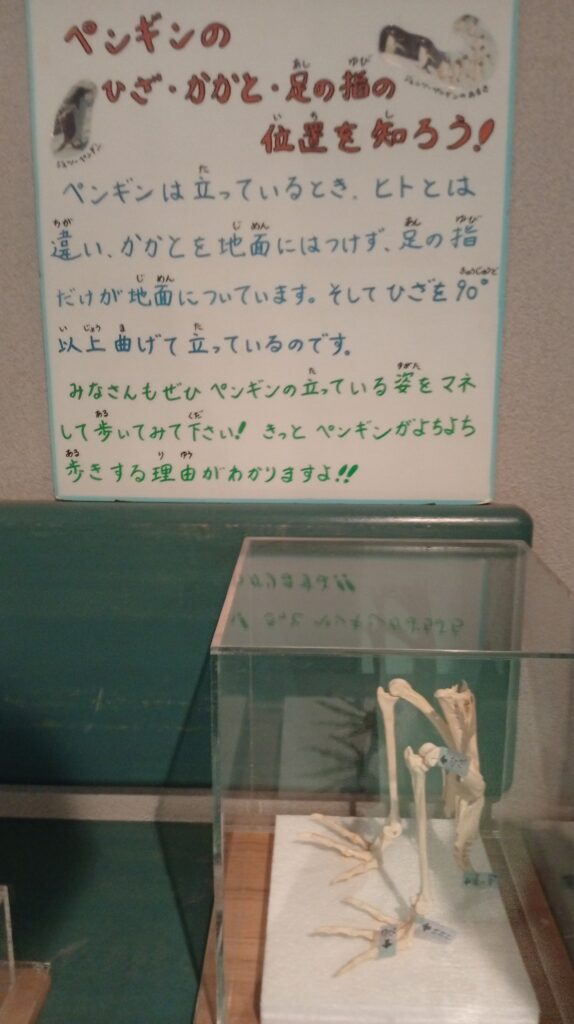 ペンギンの
ひざ・かかと・足の指の
位置を知ろう!
ジェンツーペンギン
ペンギンは立っているとき、ヒトとは
違い、かかとを地面にはつけず、足の指
だけが地面についています。そしてひざを90°
以上曲げて立っているのです。
みなさんもぜひペンギンの立っている姿をマネ
して歩いてみて下さい! きっとペンギンがよちよち
歩きする理由がわかりますよ!!